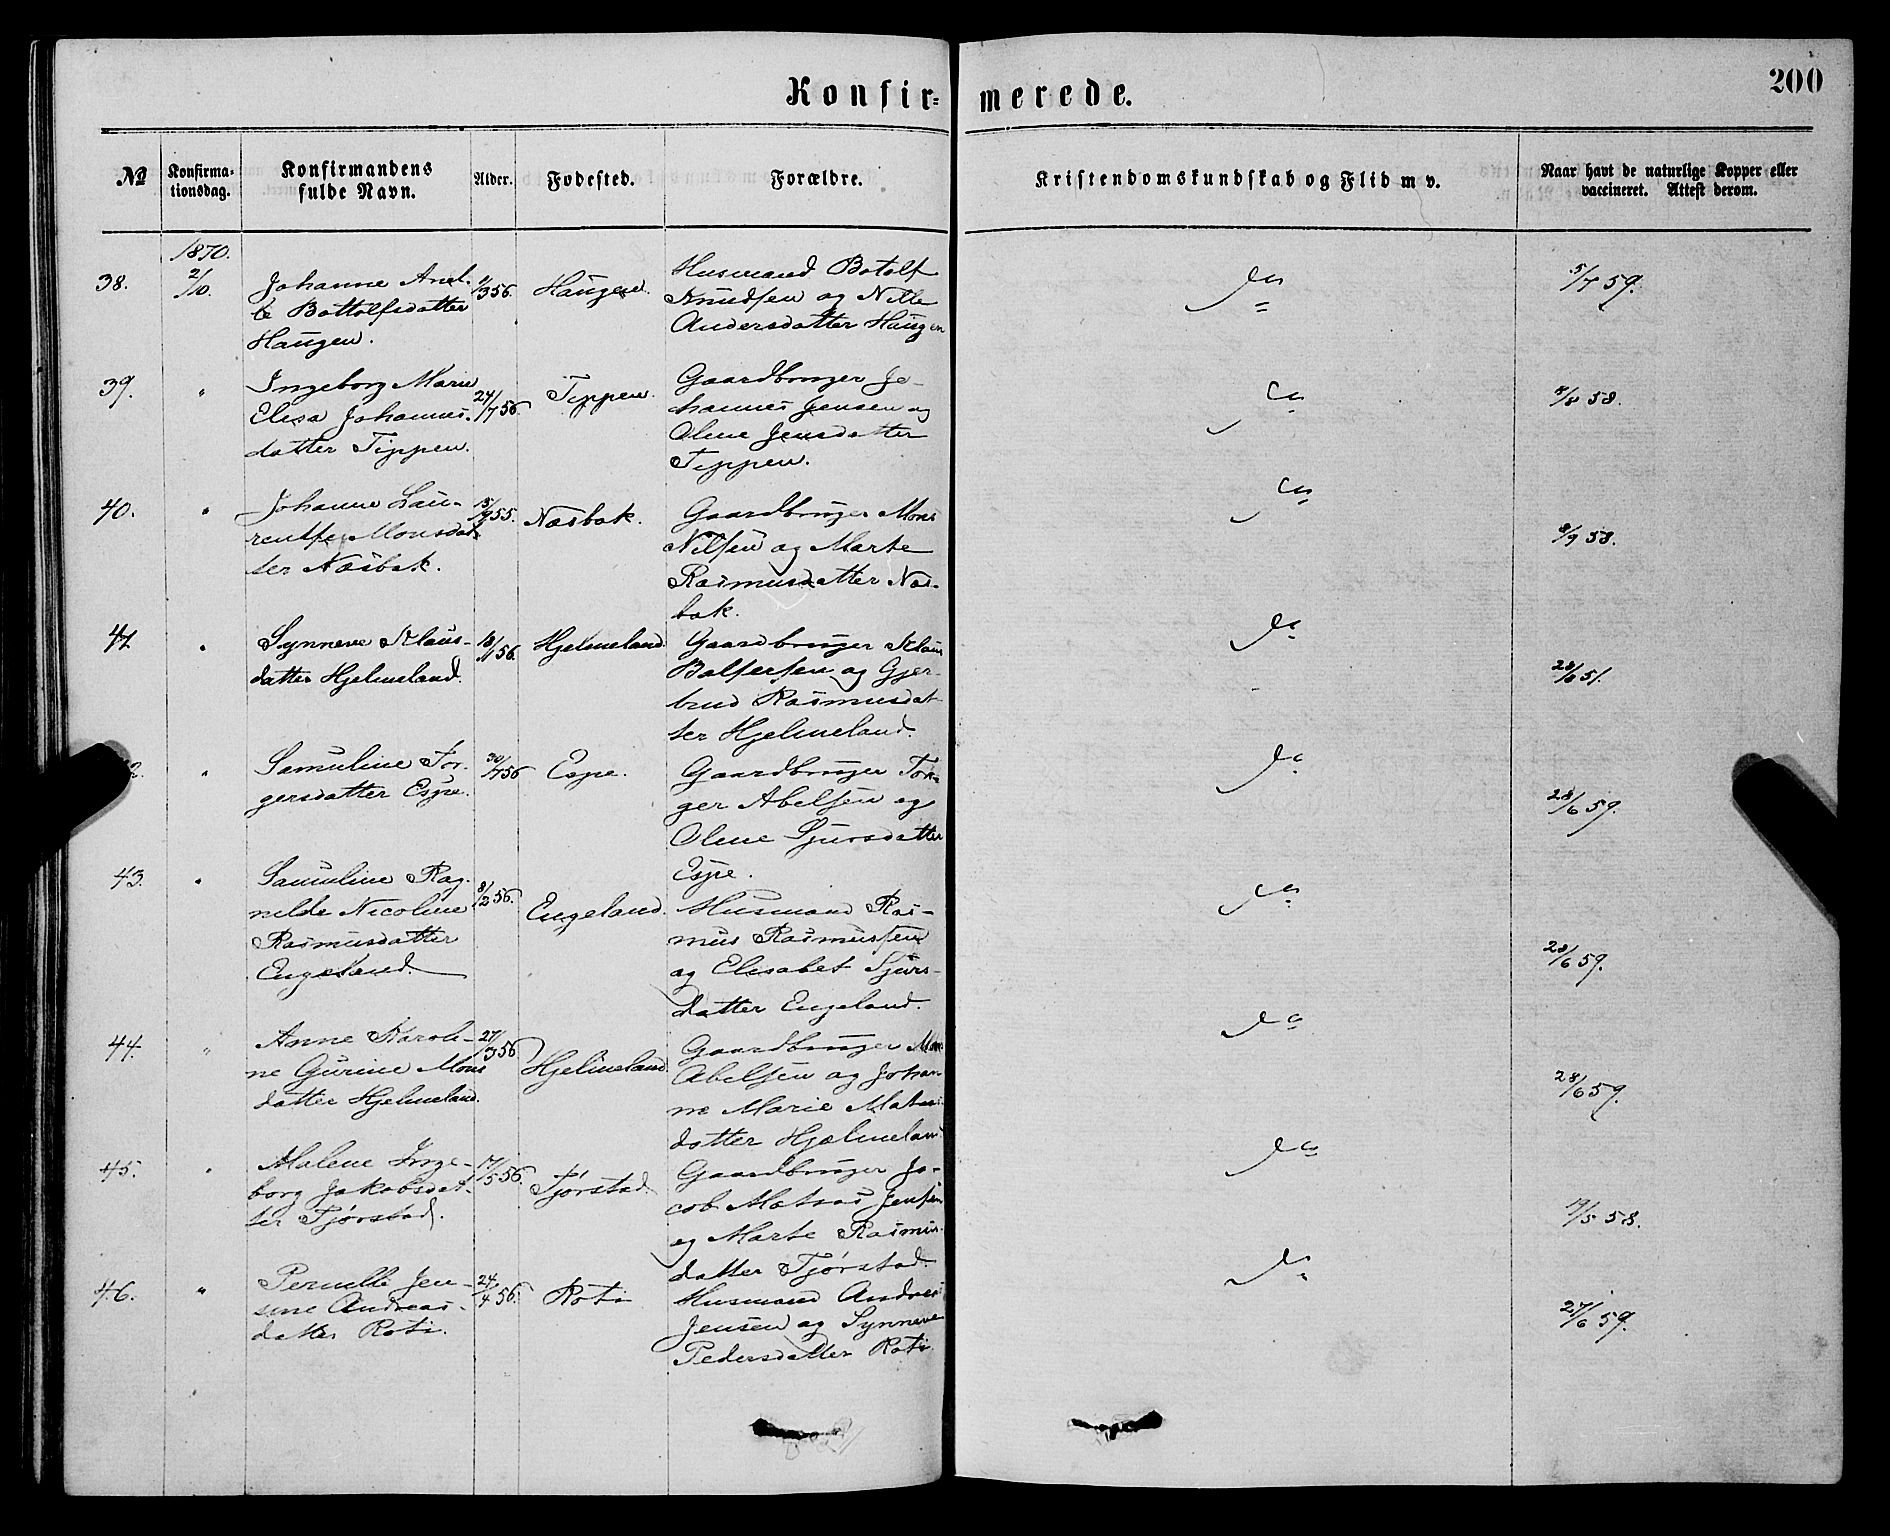 Konfir= merede.
200
№
Konfirma-
tionsdag.
Konfirmandens
fulde Navn.
Alder.
Fødested.
Forældre.
Kristendomskundskab og Flid m v.
Naar havt de naturlige Kopper eller
vaccineret. Attest derom.
1870.
38.
2/10.
Johanne Anet-
te Bottolfsdatter
Haugen.
56.
Haugen.
Husmand Botolf
Knudsen og Nille
Andersdatter Haugen
5/7 59.
39.
"
Ingeborg Marie
Elisa Johannes-
datter Tippen.
24/7 56.
Tippen.
Gaardbruger Jo-
hannes Jensen og
Oline Jensdatter
Tippen.
58.
40.
"
Johanne Lau-
rentse Monsdat-
ter Næsbak.
15/9 55.
Næsbak.
Gaardbruger Mons
Nilsen og Marte
Rasmusdatter Næs-
bak.
8/9 58.
41
"
Synneve Klaus-
datter Hjelmeland.
56.
Hjelmeland.
Gaardbruger Klaus
Balsersen og Gjer-
trud Rasmusdat-
ter Hjelmeland.
2.
"
Samuline Tor-
gersdatter Espe.
30/7 56
Espe.
Gaardbruger Tor-
ger Abelsen og
Oline Sjursdatter
Espe.
28/6 59.
43.
"
Samuline Rag-
nilde Nicoline
Rasmusdatter
Engeland.
8/2 56.
Engeland.
Husmand Ras-
mus Rasmussen
og Elisabet Sjurs-
datter Engeland.
28/6 59.
44.
"
Anne Karoli-
ne Gurine Mons
datter Hjelmeland.
27/3 56
Hjelmeland.
Gaardbruger Mons
Abelsen og Johan-
ne Marie Matias-
datter Hjelmeland
28/6 59.
45.
"
Malene Inge-
borg Jakobsdat-
ter Tjørstad.
17/5 56.
Tjørstad.
Gaardbruger Ja-
cob Matias Jensen
og Marte Rasmus-
datter Tjørstad.
58.
46.
"
Pernille Jen-
sine Andreas-
datter Roti.
24/4 56.
Roti
Husmand Andreas
Jensen og Synneve
Pedersdatter Roti
27/6 59.